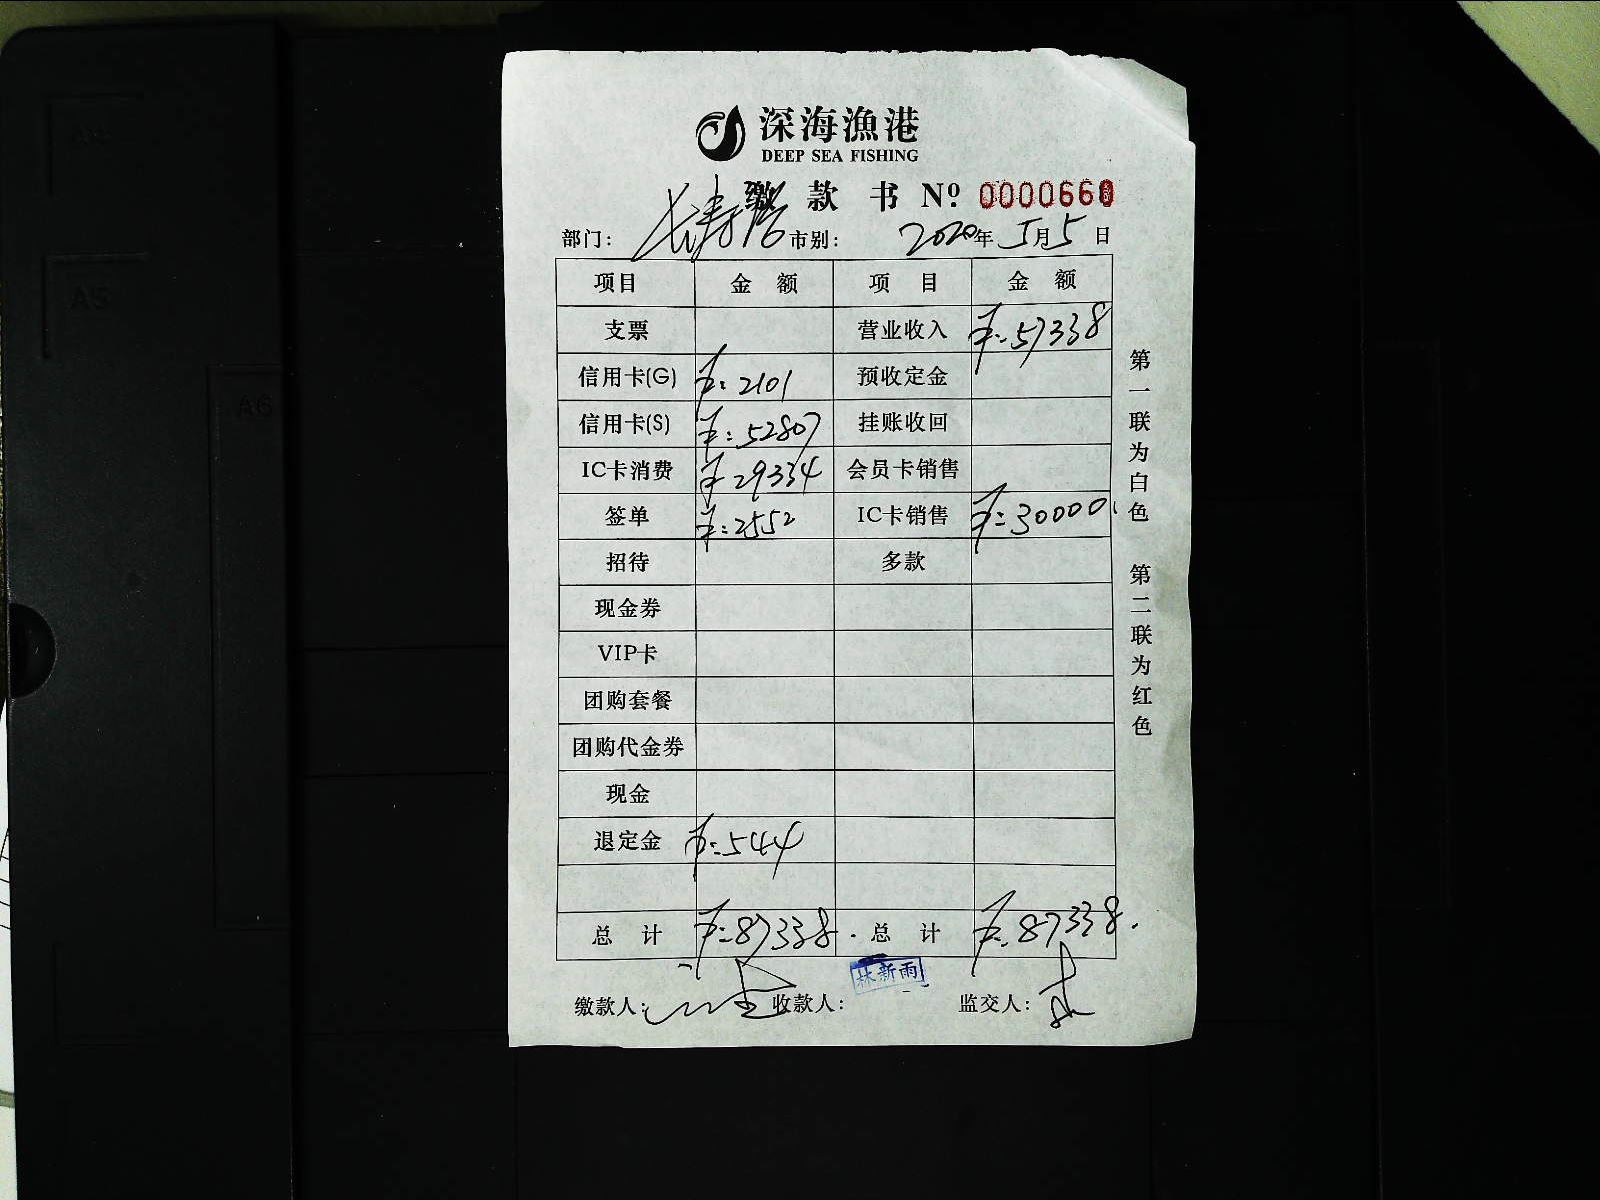 深海漁港
DEEP SEA FISHING
缴款书 Nº 0000660
部门： 市别： 2020年5月5日
项目 金额 项目 金额
支票 营业收入 ￥:57338
信用卡(G) ￥:2101 预收定金
信用卡(S) ￥:52807 挂账收回
IC卡消费 ￥29334 会员卡销售
签单 ￥:2552 IC卡销售 ￥:30000
招待 多款
现金券
VIP卡
团购套餐
团购代金券
现金
退定金 ￥:544
总计 ￥:87338 总计 ￥:87338
缴款人： 收款人： 林新雨 监交人：
第一联为白色 第二联为红色
A5
A6